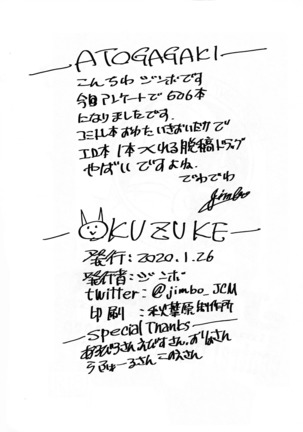 ATOGAGAKI
こんちわ ジンボです
今回アンケートで 606本
になりましたです.
コミトレ本おわたいきおいだけで
エロ本 1本つくれる脱稿ドラッグ
やばいですよね.
でわでわ
jimbo
OKUZUKE
発行:2020.1.26
発行者:ジンボ
twitter:@jimbo_JCM
印刷:秋葉原制作所
Special Thanks